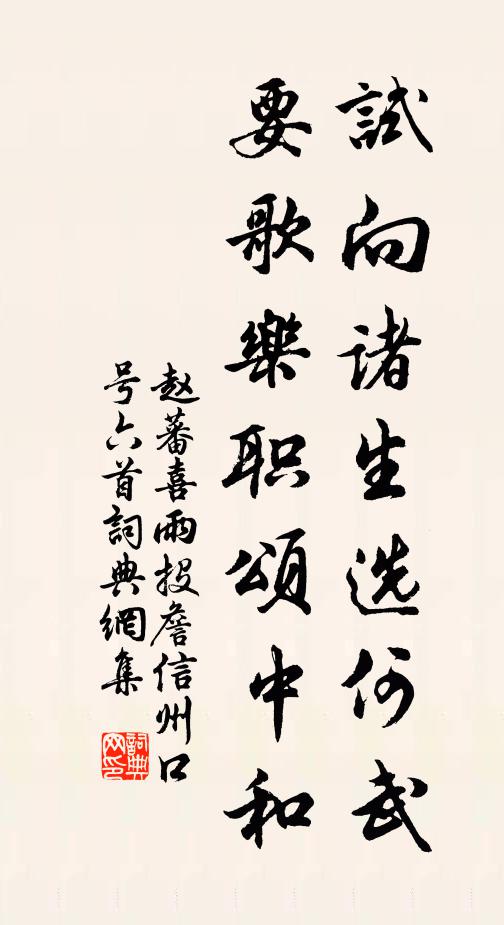 試向诸生选何武
要歌樂职頌中和
赵蕃喜雨投詹信州口
号六首詞典網集
詞典
网印